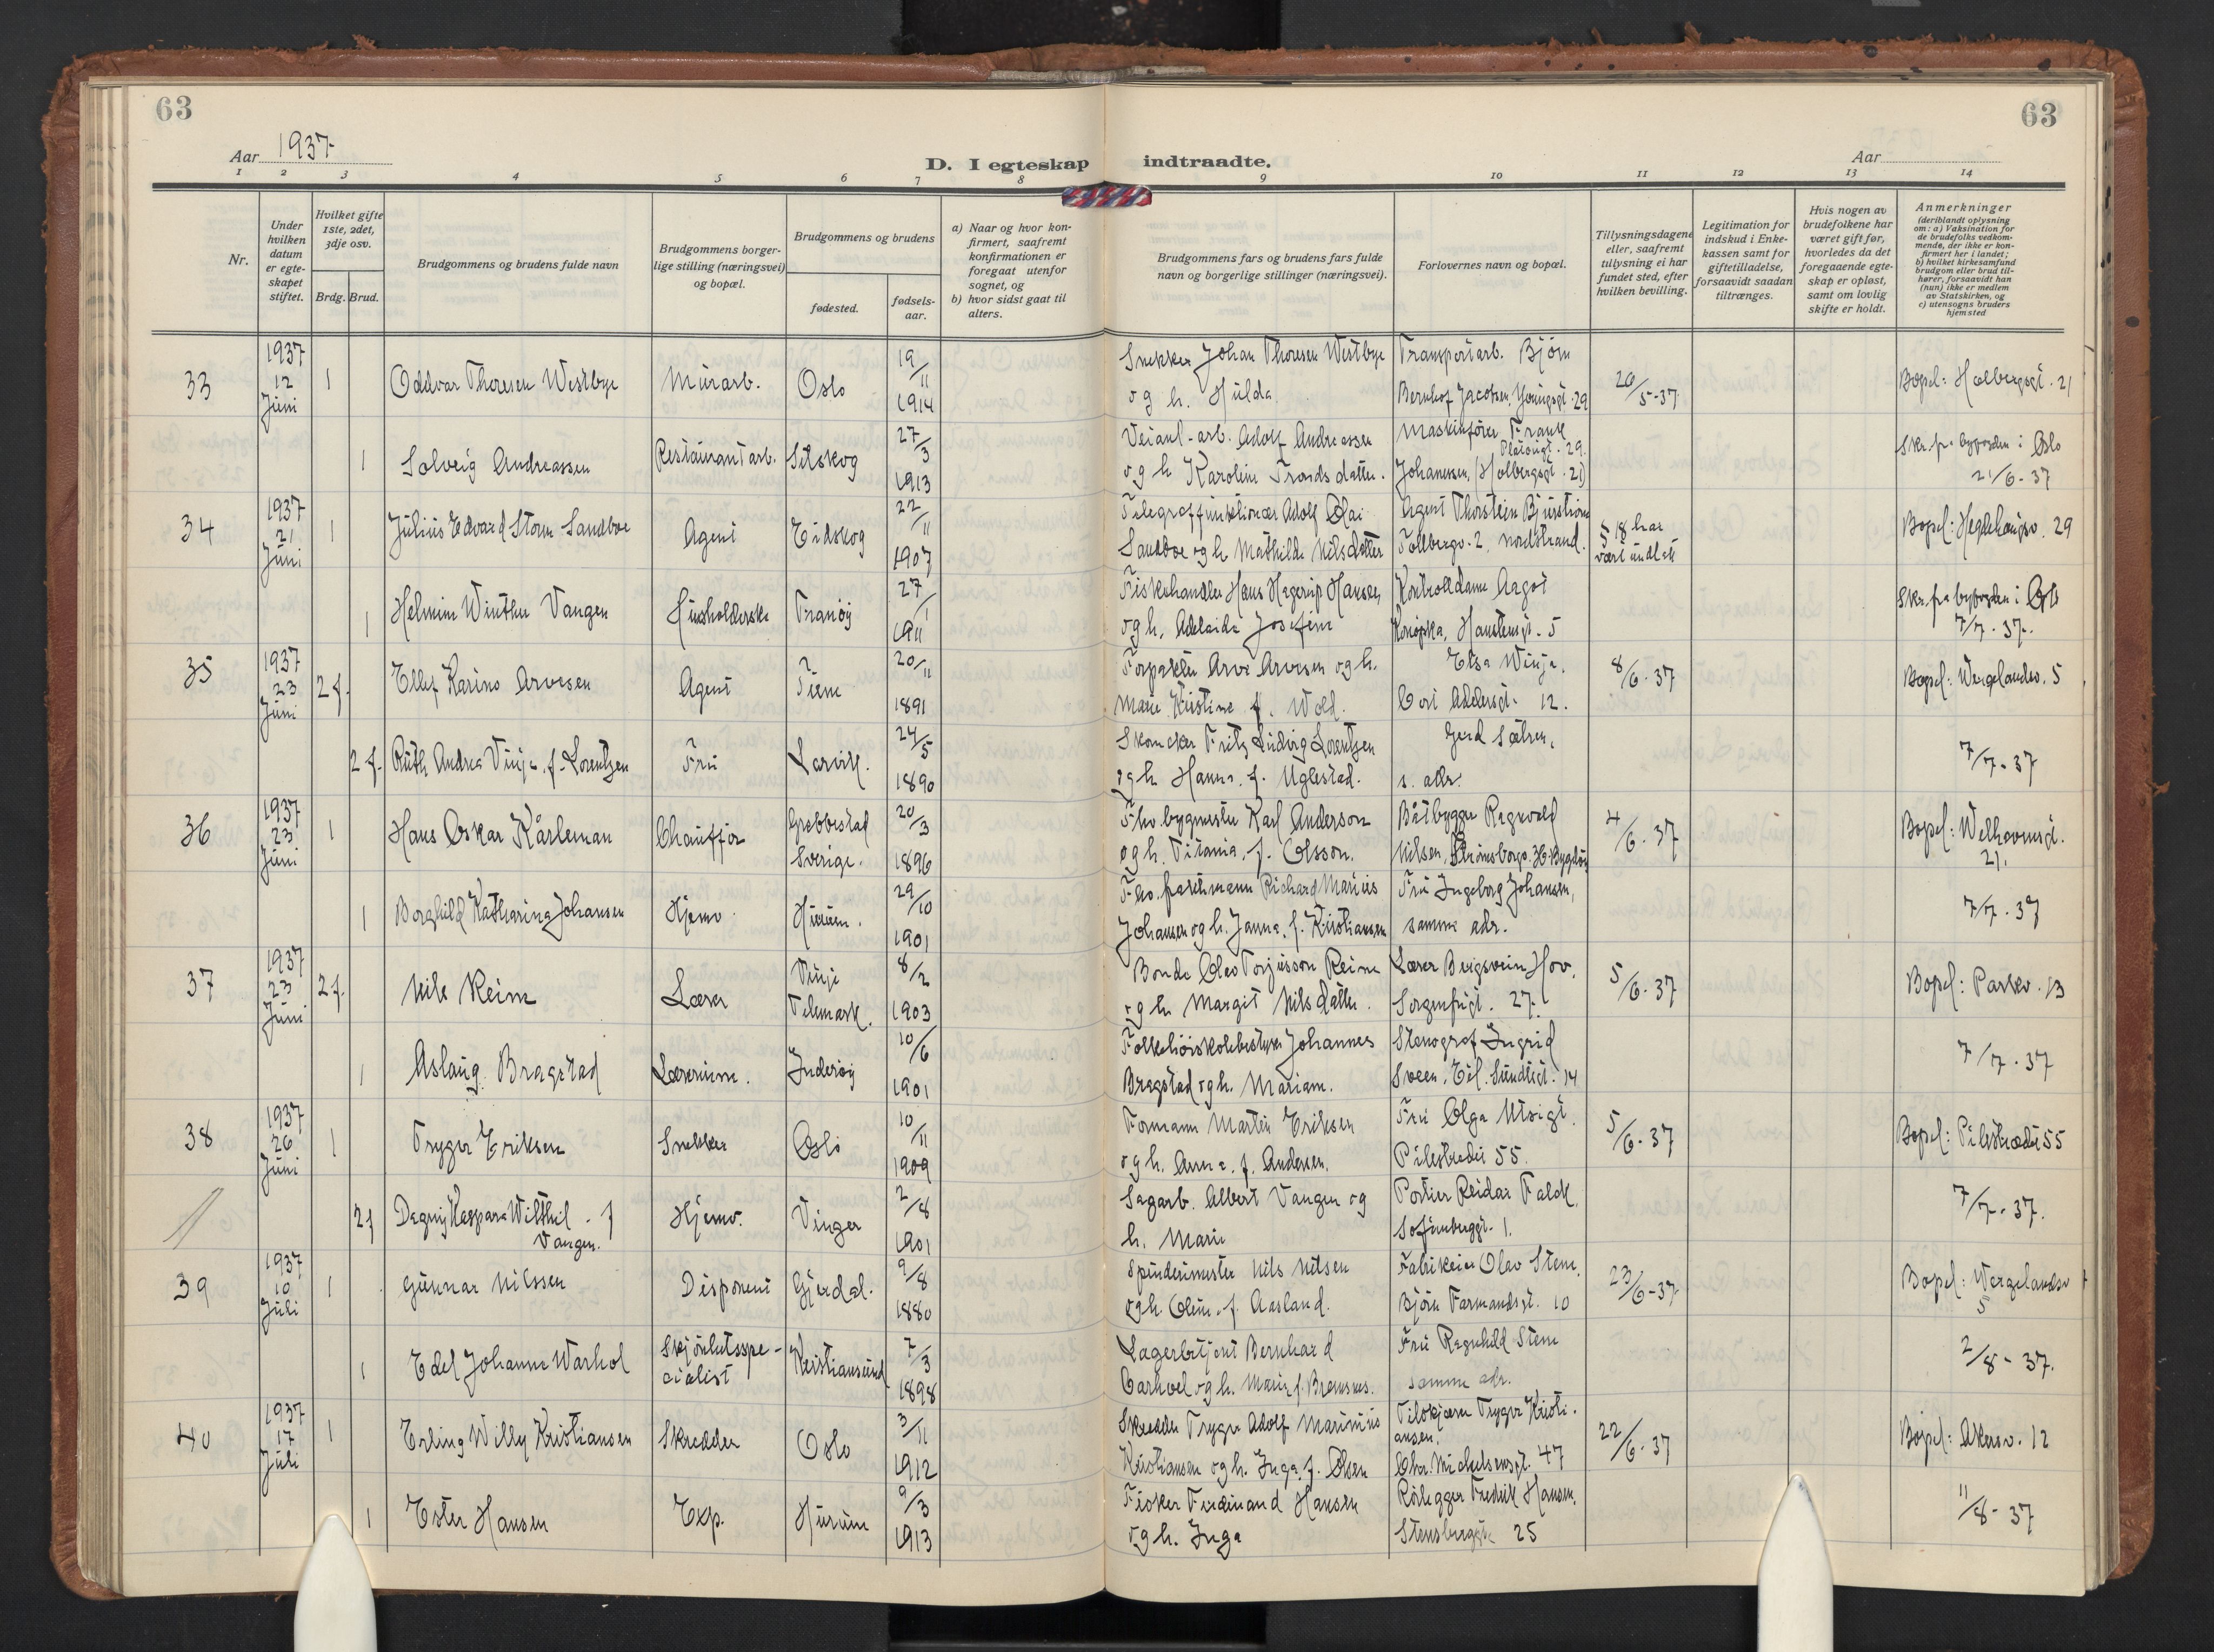 63
63
Aar 1937
D. I egteskap indtraadte.
Aar
1 2 3 4 5 6 7 8 9 10 11 12 13 14
Nr.
Under hvilken datum er egteskapet stiftet.
Hvilket gifte 1ste, 2det, 3dje osv.
Brdg. Brud.
Brudgommens og brudens fulde navn
Brudgommens borgerlige stilling (næringsvei) og bopæl.
Brudgommens og brudens
fødested.
fødselsaar.
a) Naar og hvor konfirmert, saafremt konfirmationen er foregaat utenfor sognet, og
b) hvor sidst gaat til alters.
Brudgommens fars og brudens fars fulde navn og borgerlige stillinger (næringsvei).
Forlovernes navn og bopæl.
Tillysningsdagene eller, saafremt tillysning ei har fundet sted, efter hvilken bevilling.
Legitimation for indskud i Enkekassen samt for giftetilladelse, forsaavidt saadan tiltrænges.
Hvis nogen av brudefolkene har været gift før, hvorledes da det foregaaende egteskap er opløst, samt om lovlig skifte er holdt.
Anmerkninger
(deriblandt oplysning om: a) Vaksination for de brudefolks vedkommende, der ikke er konfirmert her i landet;
b) hvilket kirkesamfund brudgom eller brud tilhører, forsaavidt han (hun) ikke er medlem av Statskirken, og
c) utensogns bruders hjemsted
33 1937 12 Juni 1 Oddvar Thoresen Westbye Murarb. Oslo 19/11 1914 Snekker Johan Thoresen Westbye og h. Hulda. Transportarb. Bjørn Bernhof Jacobsen, Youngsgt. 29 20/5-37 Bopel: Holbergsgt. 21
1 Solveig Andreassen Restaurantarb. Setskog 27/3 1913 Veianl-arb. Adolf Andreassen og h Karoline Trondsdatter. Maskinfører Frank Johannesen, (Holbergsgt. 21) Skr. fra byfogden i Oslo 21/6-37
34 1937 21 Juni 1 Julius Edvard Storm Sandboe Agent Eidskog 22/11 1907 Telegraffunktionær Adolf Olai Sandboe og h Mathilde Nilsdatter Agent Thorstein Bjurstrøm Tollbergv. 2, Nordstrand. § 18 har vært undlatt Bopel: Hegdehaugsv. 29
1 Helmine Winther Vangen Husholderske Tranøy 27/1 1911 Fiskehandler Hans Hagerup Hansen og h. Adelaide Josefine Kontrolldame Aagot Konopka, Hauchensgt. 5 Skr. fra byfogden i Oslo 7/7-37.
35 1937 23 Juni 2 f. Ellef Karino Arvesen Agent 20/11 1891 Forpakter Arve Arvesen og h. Marie Kristine f. Wold. Elsa Winje. Cort Adelersgt. 12. 8/6-37 Bopel: Wergelandsv. 5
2 f. Ruth Andrea Vinje f. Lorentzen Fru Larvik. 24/5 1890 Skomaker Fritz Ludvig Lorentzen og h Hanna f. Uglestad. Gerd Sætren, s. adr. 7/7-37
36 1937 23 Juni 1 Hans Oskar Kårleman Chauffør Grebbestad Sverige. 20/3 1896 Fhv. bygmester Karl Anderson og h. Titania, f. Olsson. Båtbygger Ragnvald Nilsen, Strømsborgv. 36 Bygdøy 4/6-37 Bopel: Welhavensgt. 21.
1 Borghild Katharina Johansen Hjemv. Hurum. 29/10 1901 Fhv. fraktmann Richard Marius Johansen og h. Janna, f. Kristiansen Fru Ingeborg Johansen, samme adr. 7/7-37
37 1937 23 Juni 2 f. Nils Reine Lærer Vinje Telemark. 8/2 1903 Bonde Olav Torjusson Reine og h Margit Nilsdatter. Lærer Bergsvein Hov. Sorgenfrigt. 27. 5/6-37 Bopel: Parkv. 13
1 Aslaug Bragstad Lærerinne. Inderøy 10/6 1901 Folkehøiskolebestyrer Johannes Bragstad og h. Mariane. Stenograf Ingrid Sveen, Eil. Sundtsgt. 14 7/7-37
38 1937 26 Juni 1 Trygve Eriksen Snekker Oslo 10/11 1909 Formann Martin Eriksen og h. Anna f. Andersen. Fru Olga Utsigt. Pilestredet 55. 5/6-37 Bopel: Pilestredet 55
2 f Dagny Kaspara Wilthil - f Vangen. Hjemv. Vinger 2/8 1901 Sagarb. Albert Vangen og h. Marie Portier Reidar Falck. Sofienberggt. 1. 7/7-37.
39 1937 10 Juli 1 Gunnar Nilssen Disponent Gjerdal. 9/8 1880 Spinderimester Nils Nilsen og h Oline f. Aasland. Fabrikeier Olav Stene. Bjørn Farmandsgt. 10 23/6-37 Bopel: Wergelandsv 5
1 Edel Johanne Warhol Skjønhetsspecialist Kristiansund 7/3 1898 Lagerbetjent Bernhard Carhvel og h. Marie f. Bremsnes. Fru Ragnhild Stene samme adr. 2/8-37.
40 1937 17 Juli 1 Erling Willy Kristiansen Skredder Oslo 3/11 1912 Skredder Trygve Adolf Marinius Kristiansen og h. Inga f. Olsen Tilskjærer Trygve Kristiansen. Chr. Michelsensgt. 47 22/6-37 Bopel: Akersv. 12
1 Ester Hansen Exp. Hurum 9/3 1913 Fisker Ferdinand Hansen og h. Inga Rørlegger Fredrik Hansen. Stensberggt. 25 11/8-37